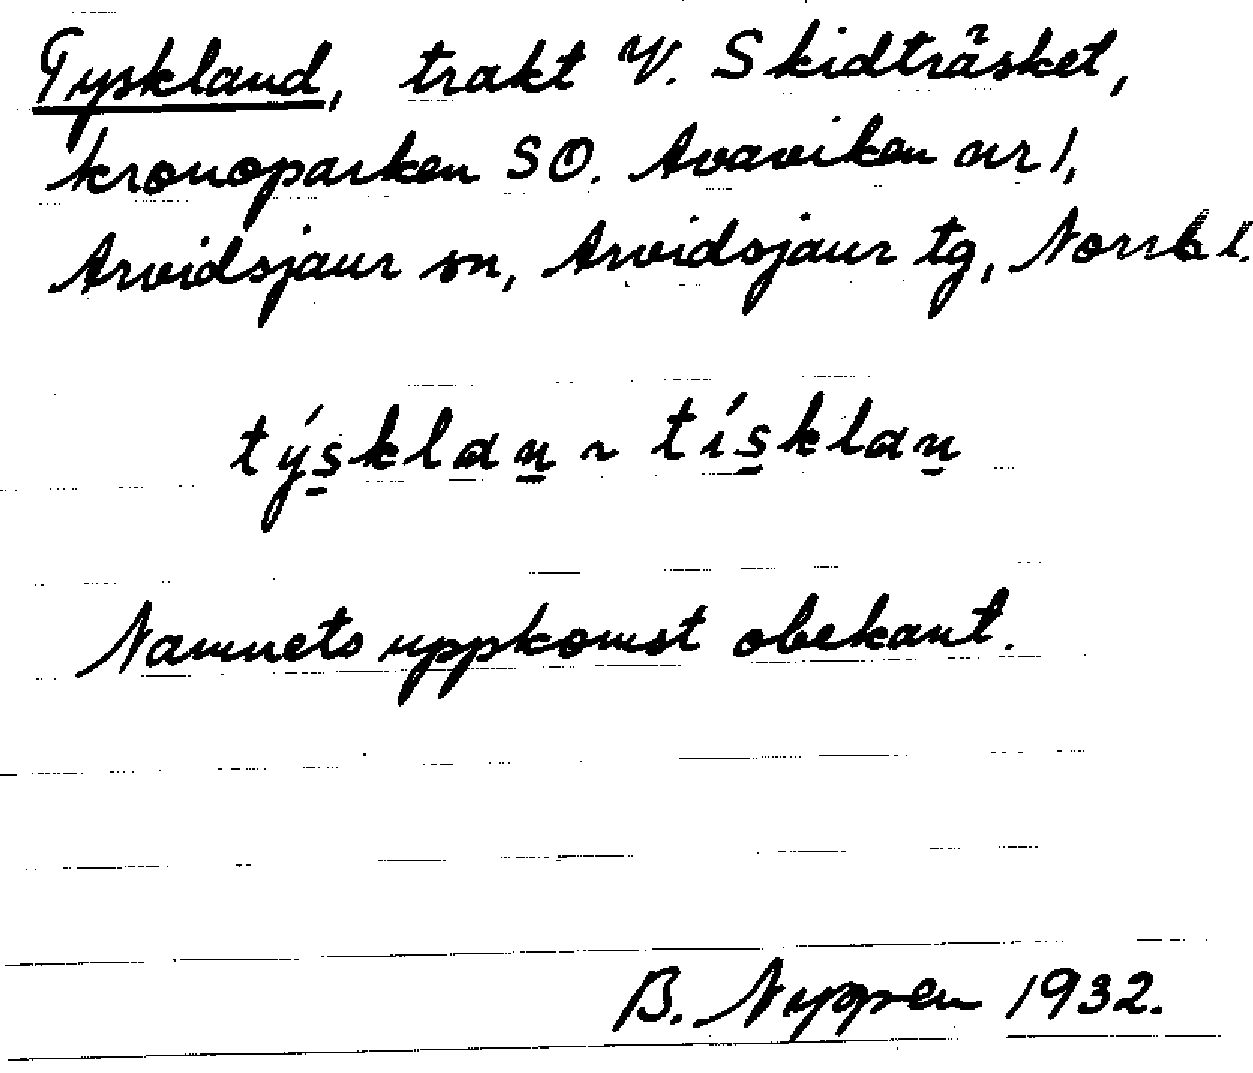 Tyskland, trakt V. Skidträsket,
kronoparken SO. Avaviken nr 1,
Arvidsjaur sn, Arvidsjaur tg, Norrb l.
týs̱klaṉ ~ tís̱klaṉ
Namnets uppkomst obekant.
B. Nyppen 1932.